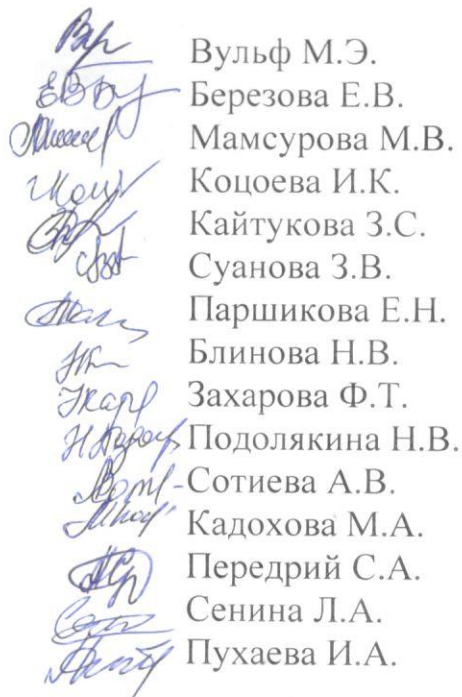 Вульф М.Э.
Березова Е.В.
Мамсурова М.В.
Коцоева И.К.
Кайтукова З.С.
Суанова З.В.
Паршикова Е.Н.
Блинова Н.В.
Захарова Ф.Т.
Подолякина Н.В.
Сотиева А.В.
Кадохова М.А.
Передрий С.А.
Сенина Л.А.
Пухаева И.А.